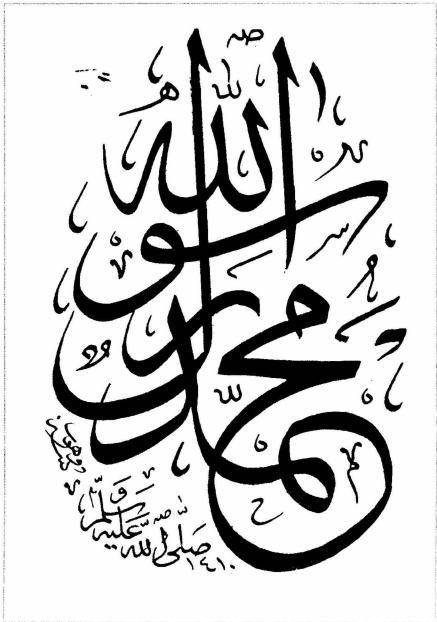 محمد رسول الله
صلى الله عليه وسلم
١٤١٠